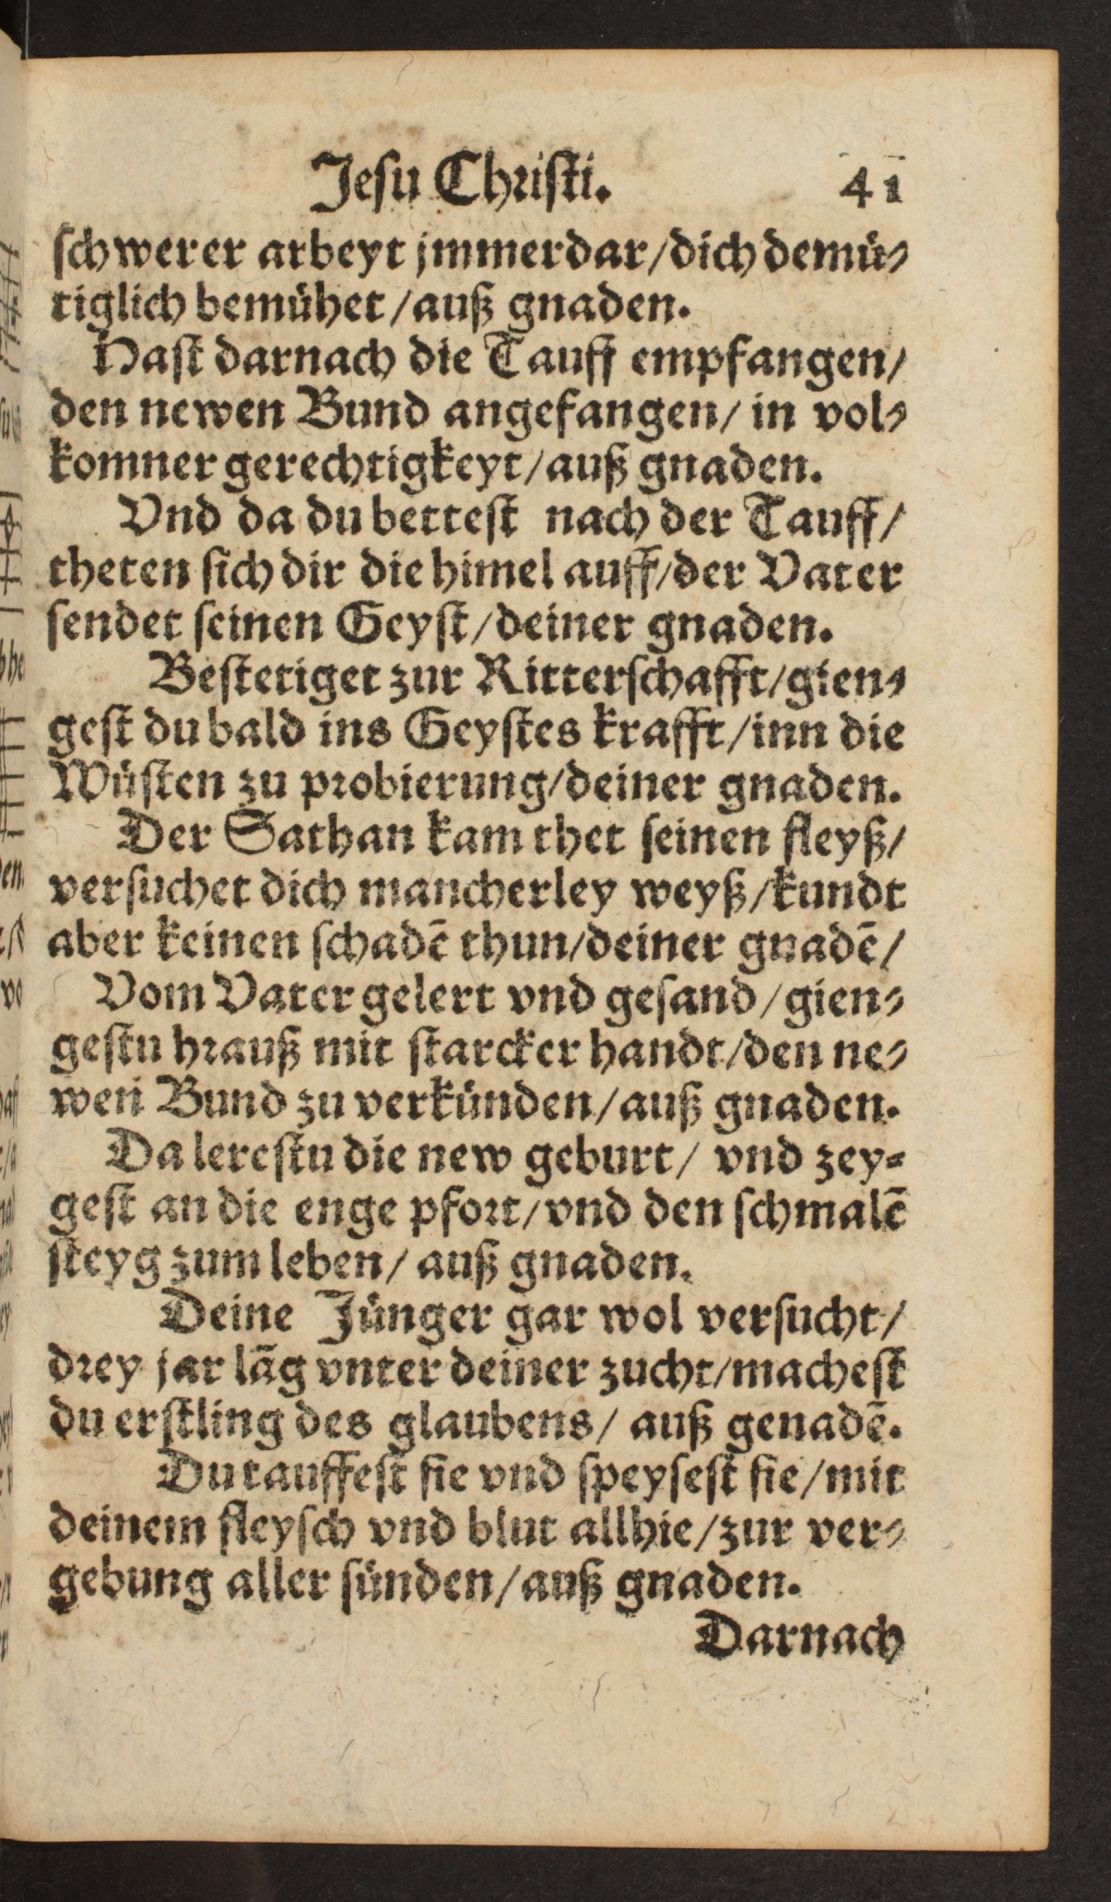 Jesu Christi. 41
schwerer arbeyt jmmerdar/dich demü⸗
tiglich bemühet/auß gnaden.
Hast darnach die Tauff empfangen/
den newen Bund angefangen/ in vol⸗
komner gerechtigkeyt/auß gnaden.
Vnd da du bettest nach der Tauff/
theten sich dir die himel auff/der Vater
sendet seinen Geyst/deiner gnaden.
Bestetiget zur Ritterschafft/gien⸗
gest du bald ins Geystes krafft/inn die
Wüsten zu probierung/deiner gnaden.
Der Sathan kam thet seinen fleyß/
versuchet dich mancherley weyß/kundt
aber keinen schadē thun/deiner gnadē/
Vom Vater gelert vnd gesand/gien⸗
gestu hrauß mit starcker handt/den ne⸗
wen Bund zu verkünden/auß gnaden.
Da lerestu die new geburt/ vnd zey⸗
gest an die enge pfort/vnd den schmalē
steyg zum leben/ auß gnaden.
Deine Jünger gar wol versucht/
drey jar lāg vnter deiner zucht/machest
du erstling des glaubens/ auß genadē.
Du tauffest sie vnd speysest sie/mit
deinem fleysch vnd blut allhie/zur ver⸗
gebung aller sünden/auß gnaden.
Darnach